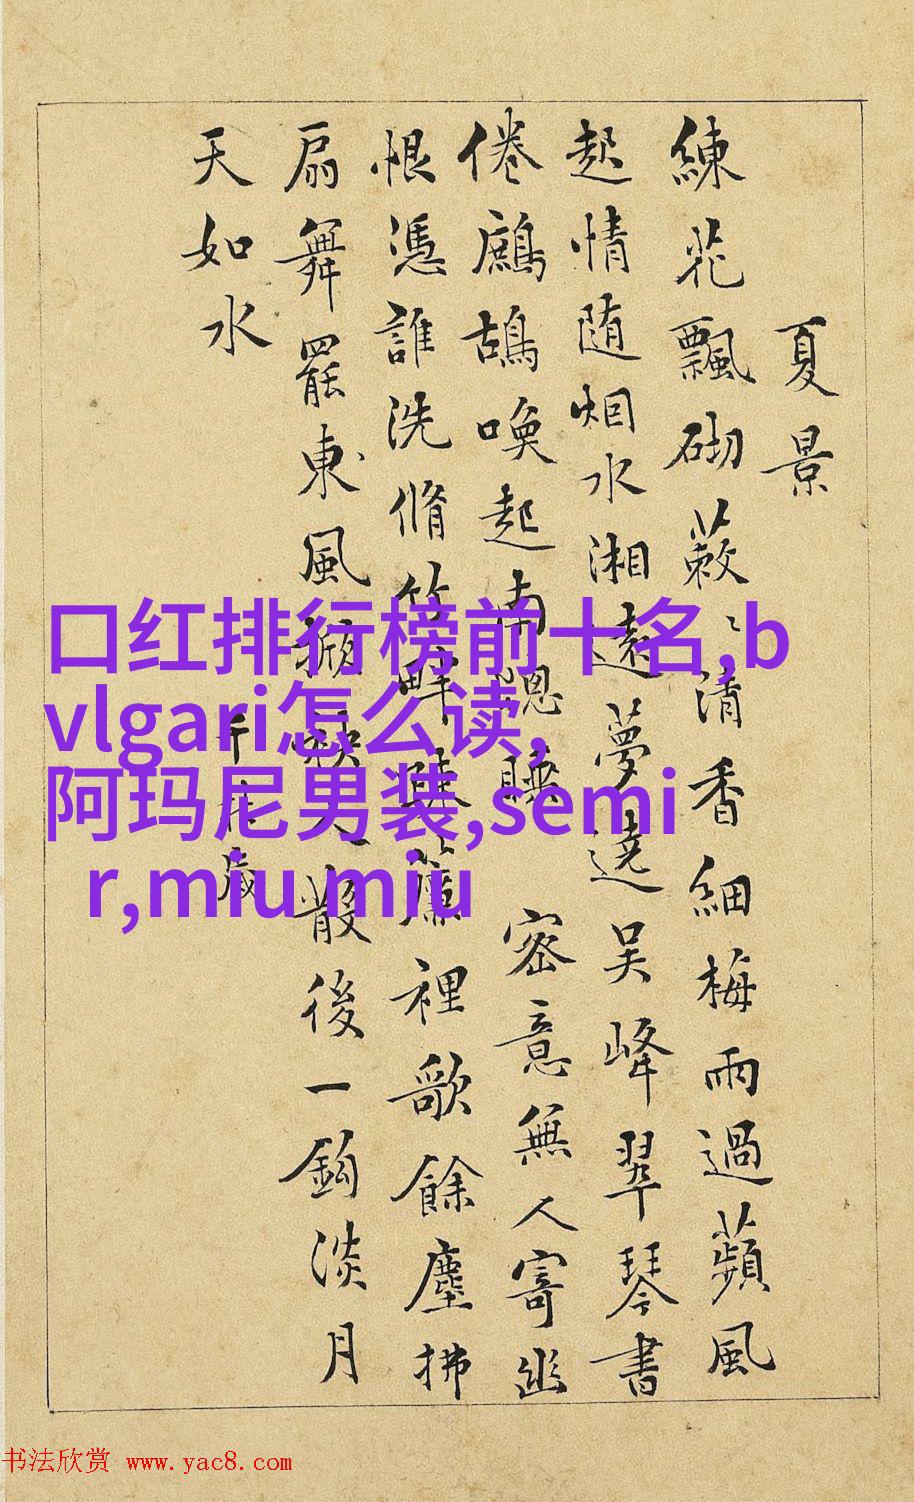 夏景
練花飄砌蔌〻清香細梅雨過蘋風
起情随烟水湘遠夢遶吴峰翠琴書
倦鷓鴣喚起南窓睡 密意無人寄幽
恨憑誰洗脩竹畔踈簾裡歌餘塵拂
扇舞罷東風掀袂人散後一鈎淡月
天如水
千秋歲
口红排行榜前十名,b
vlgari怎么读,
阿玛尼男装,semi
r,miu miu
书法欣赏 www.yac8.com